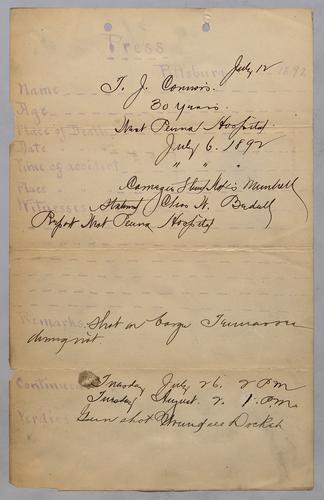 Press
July 12
Pittsburg 1892
Name T. J. Connors.
Age 30 years.
Place of Death West Penna Hospital
Date July 6. 1892
Time of accident " " "
Place
Witnesses Chas W. Bedell
Report West Penna Hospital
Remarks. Shot on barge
inquest.
Continued Tuesday July 26. 2 PM
Tuesday August 2. 1. P.M.
Verdict Gun shot Wound see Docket